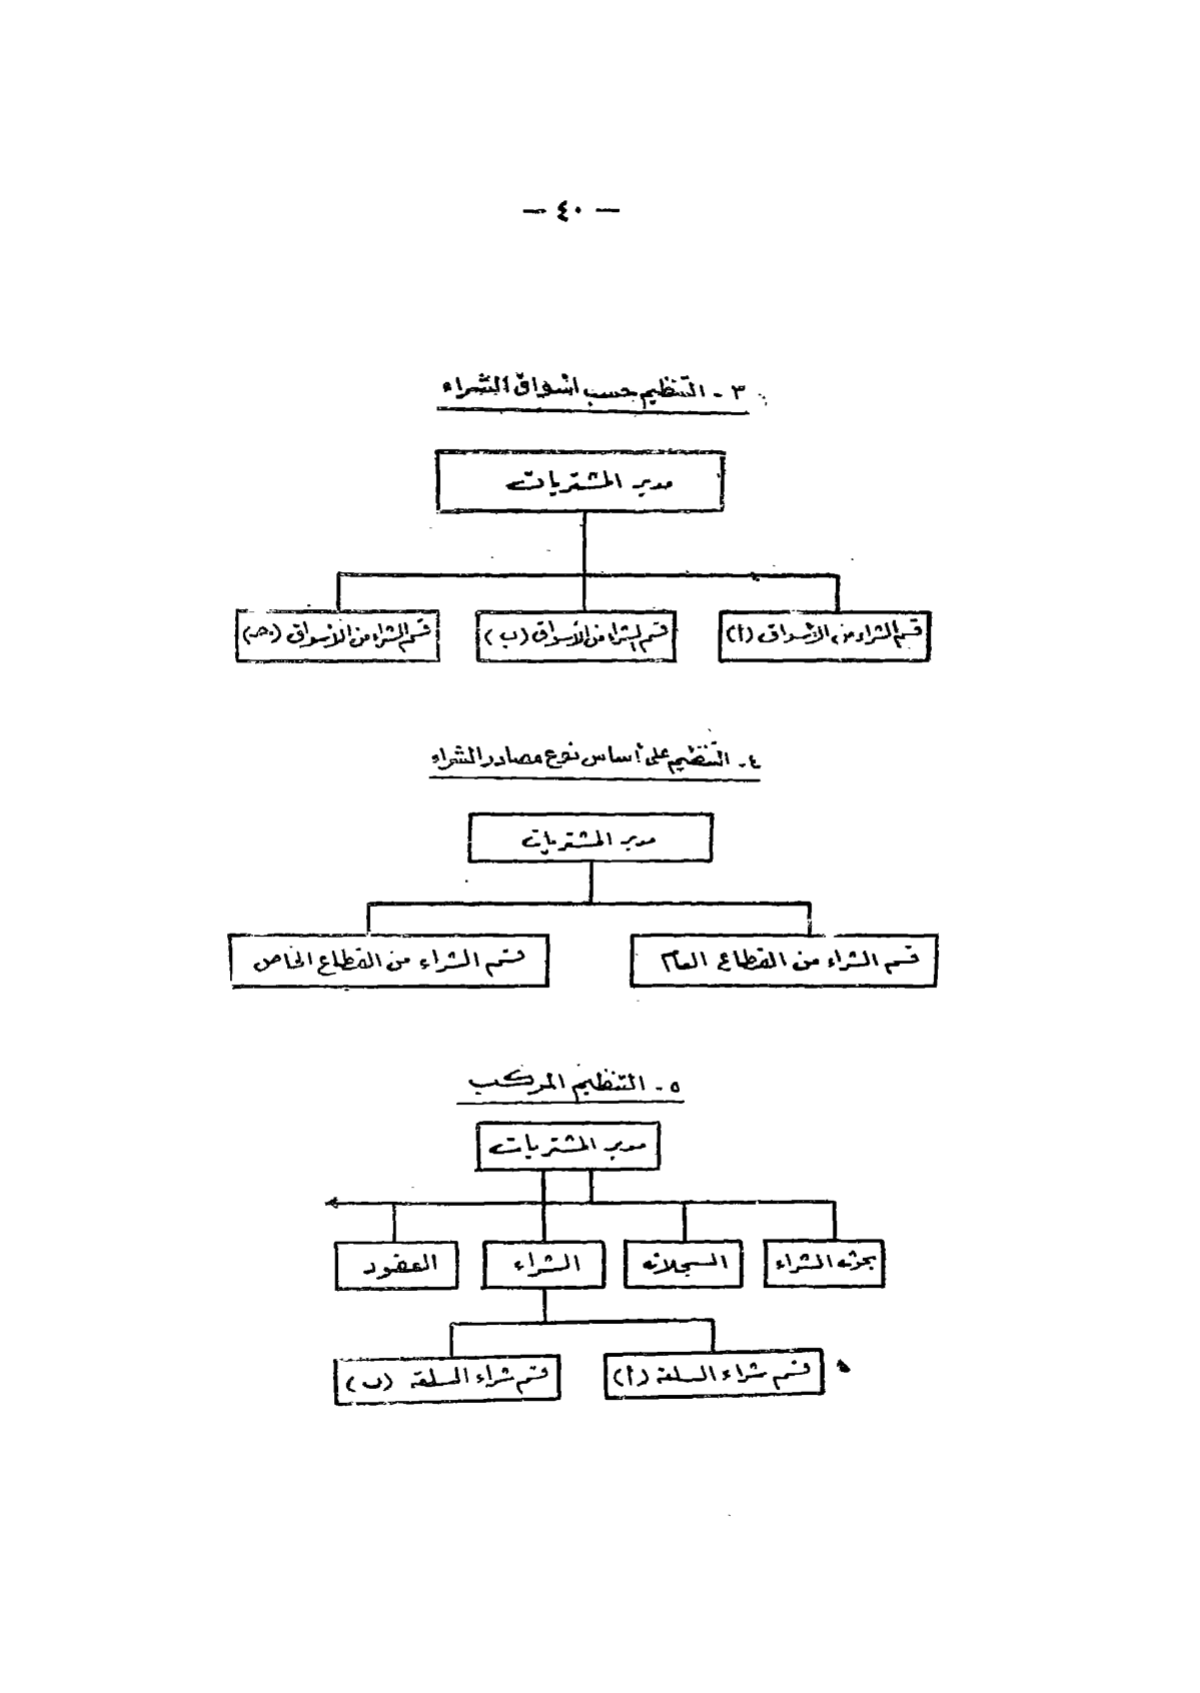 — ٤٠ —
٣ - التنظيم حسب أسواق الشراء
مدير المشتريات
قسم الشراء من الأسواق (أ)
قسم الشراء من الأسواق (ب)
قسم الشراء من الأسواق (جـ)
٤ - التنظيم على أساس نوع مصادر الشراء
مدير المشتريات
قسم الشراء من القطاع العام
قسم الشراء من القطاع الخاص
٥ - التنظيم المركب
مدير المشتريات
بحوث الشراء
السجلات
الشراء
العقود
قسم شراء السلعة (أ)
قسم شراء السلعة (ب)